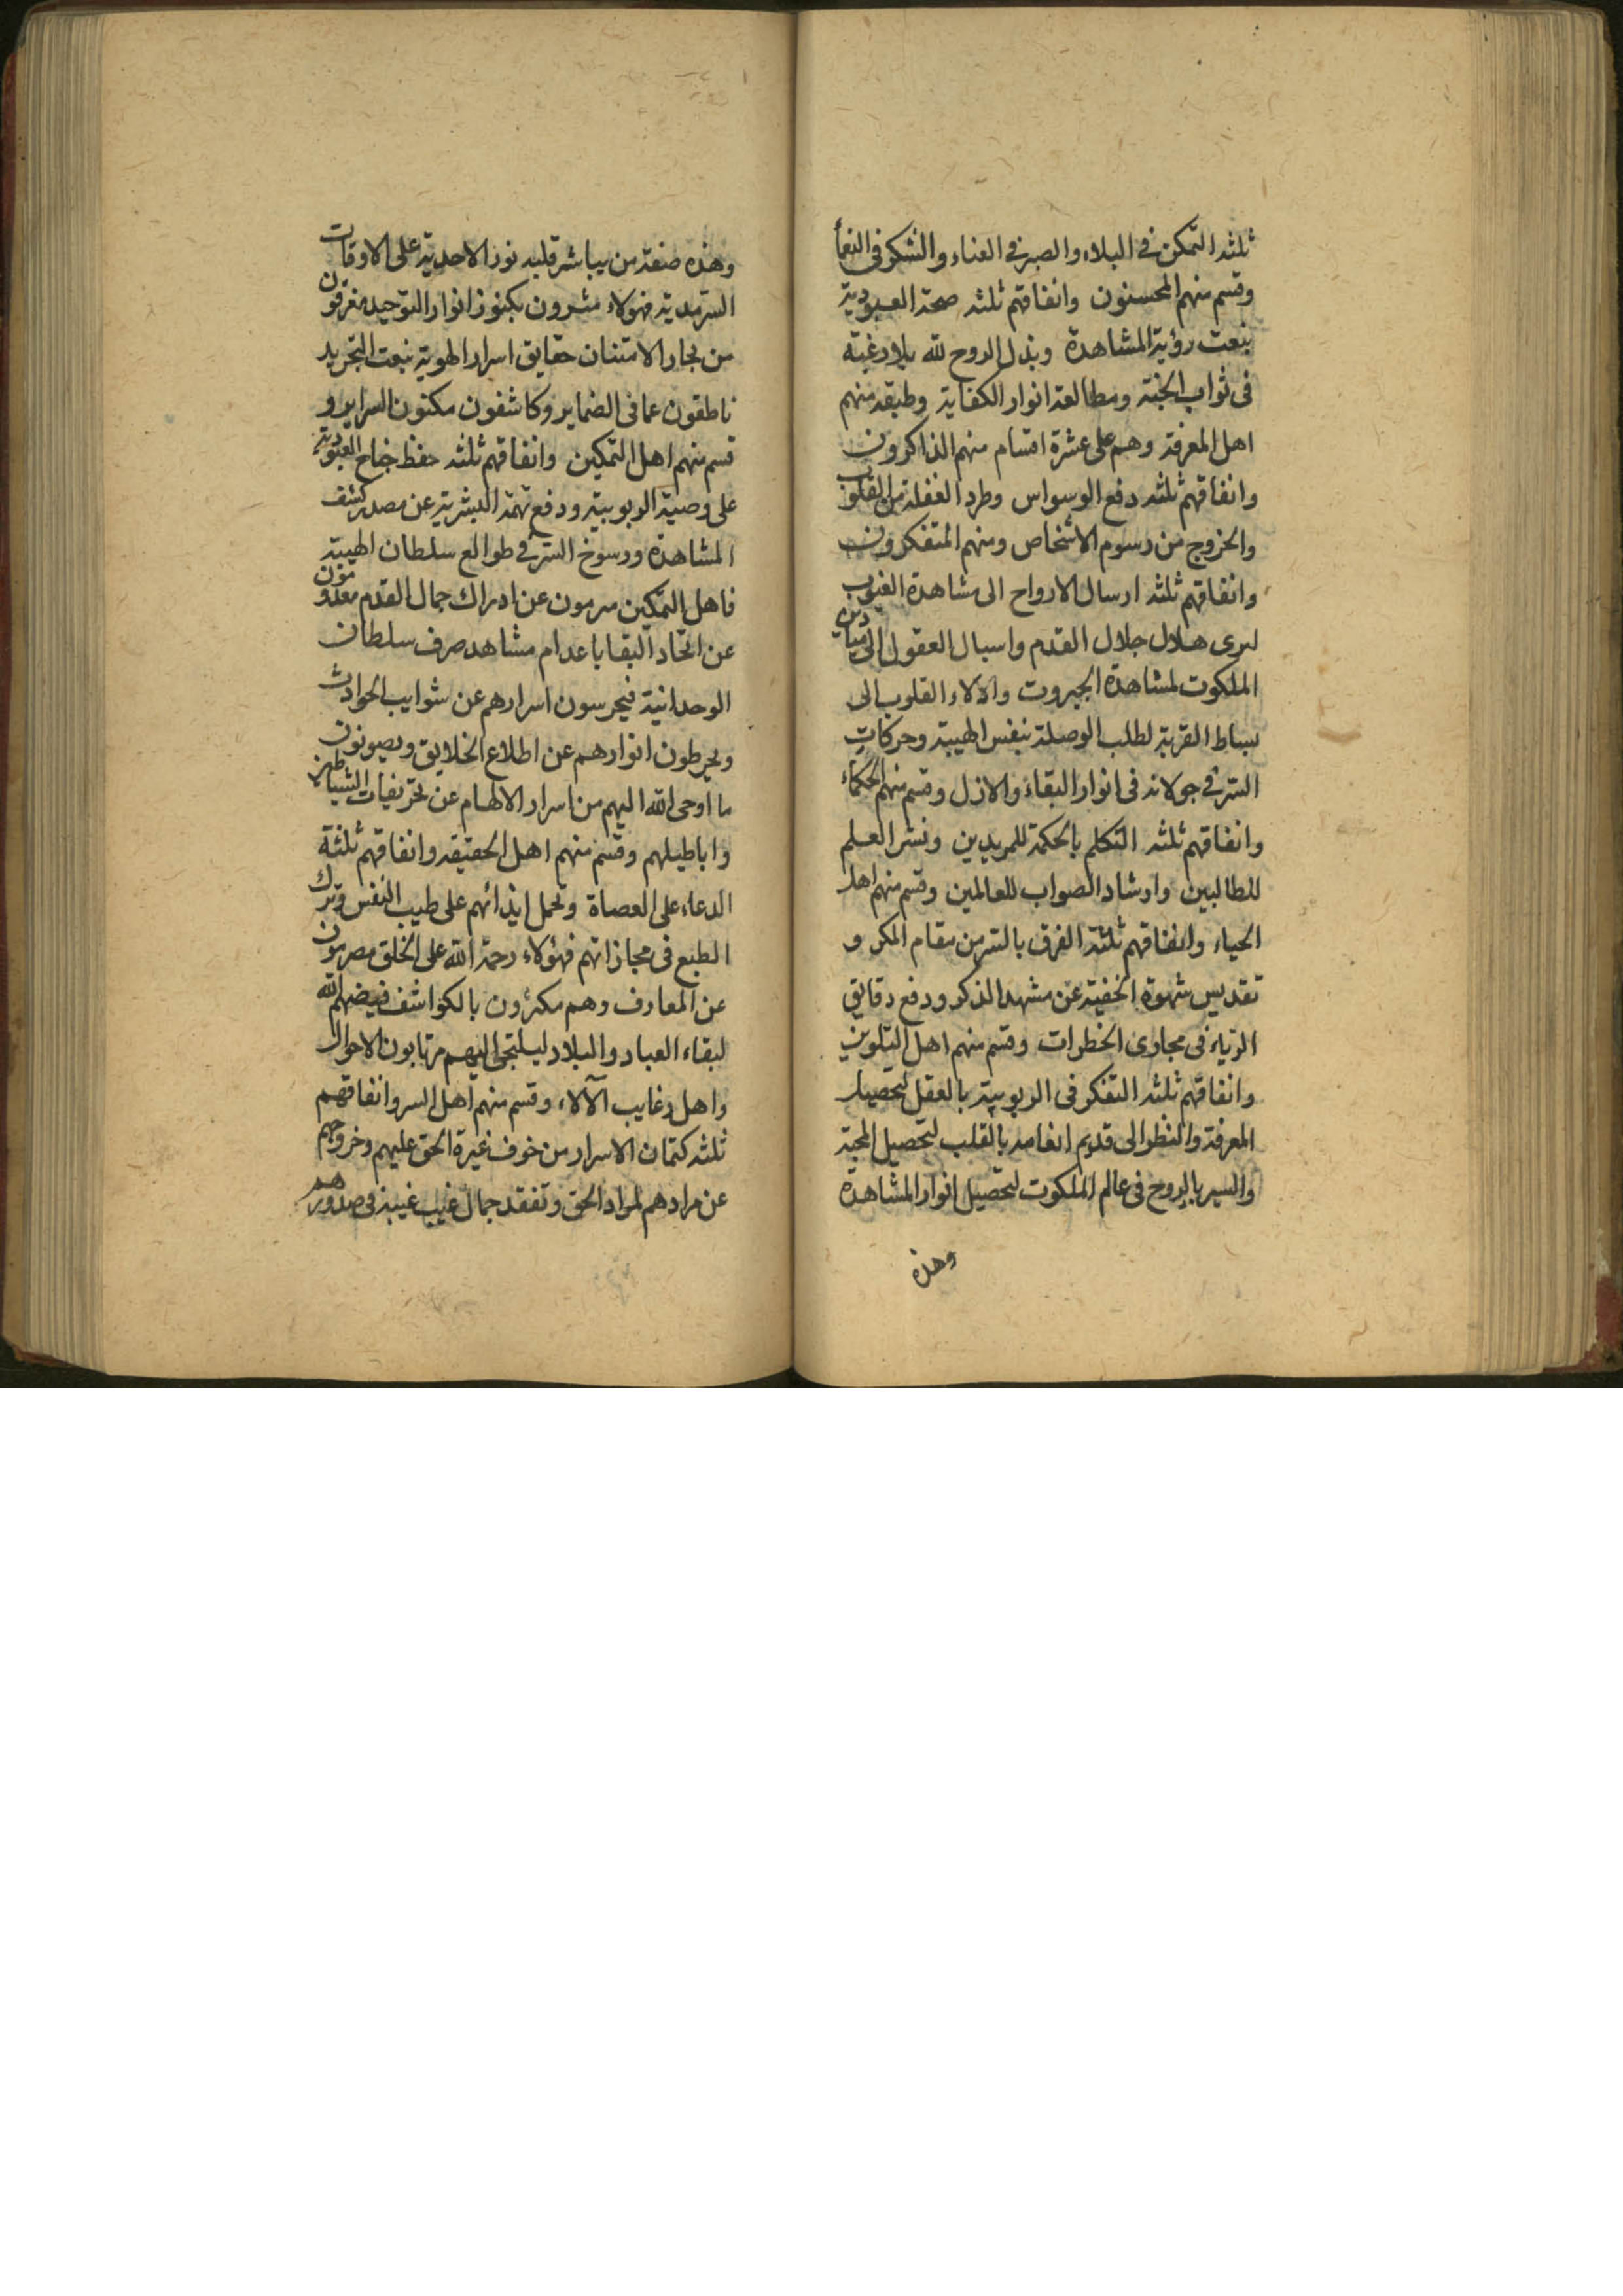 ثلثه التمكن فى البلاء والصبر فى العناء والشكر فى النعمأ
وقسم منهم المحسنون وانفاقهم ثلثه صحة العبودية
بنعت رؤية المشاهدة وبذل الروح لله بلا رغبة
فى ثواب الجنة ومطالعة انوار الكفاية وطبقه منهم
اهل المعرفة وهم على عشرة اقسام منهم الذاكرون
وانفاقهم ثلثه دفع الوسواس وطرد الغفلة من القلوب
والخروج من رسوم الاشخاص ومنهم المتفكرون
وانفاقهم ثلثه ارسال الارواح الى مشاهدة الغيوب
ليرى هلال جلال القدم واسبال العقول الى ميادين
الملكوت لمشاهدة الجبروت والآلاء القلوب الى
بساط القربة لطلب الوصلة بنفس الهيبة وحركات
السر فى جولانه فى انوار البقاء والازل وقسم منهم الحكماء
وانفاقهم ثلثه التكلم بالحكمة للمريدين ونشر العلم
للطالبين وارشاد الصواب للعالمين وقسم منهم اهل
الحياء وانفاقهم ثلثة الفرق بالسر من مقام المكر و
تقديس شهوة الخفية عن مشهد الذكر ودفع دقايق
الرياء فى مجارى الخطرات وقسم منهم اهل التلوين
وانفاقهم ثلثه التفكر فى الربوبية بالعقل لتحصيل
المعرفة والنظر الى قديم انعامه بالقلب لتحصيل المحبة
والسير بالروح فى عالم الملكوت لتحصيل انوار المشاهدة
وهذه
وهذه صفة من يباشر قلبه نور الاحدية على الاوقات
السرمدية فهولاء مثرون بكنوز انوار التوحيد مغرفون
من بحار الامتنان حقايق اسرار الهوية بنعت التجريد
ناطقون عما فى الضماير وكاشفون مكنون السراير و
قسم منهم اهل التمكين وانفاقهم ثلثه حفظ جناح العبودية
على وصية الربوبية ودفع تهمة البشرية عن مصدر كشف
المشاهدة ورسوخ السر فى طوالع سلطان الهيبة
فاهل التمكين مرمون عن ادراك جمال القدم معدومون
عن اتحاد البقا باعدام مشاهد صرف سلطان
الوحدانية فيحرسون اسرارهم عن شوايب الحوادث
ويحرطون انوارهم عن اطلاع الخلايق ويصونون
ما اوحى الله اليهم من اسرار الالهام عن تحريفات الشياطين
واباطيلهم وقسم منهم اهل الحقيقه وانفاقهم ثلثة
الدعاء على العصاة وتحمل ايذائهم على طيب النفس وترك
الطبع فى مجازاتهم فهؤلاء رحمة الله على الخلق مصرمون
عن المعارف وهم مكبرون بالكواشف فيضهم الله
لبقاء العباد والبلاد ليلتجى اليهم مرتابون الاحوال
واهل رغايب الآلاء وقسم منهم اهل السر وانفاقهم
ثلثه كتمان الاسرار من خوف غيرة الحق عليهم وخروجهم
عن مرادهم لمراد الحق وتفقد جمال غيب غيبه فى صدورهم